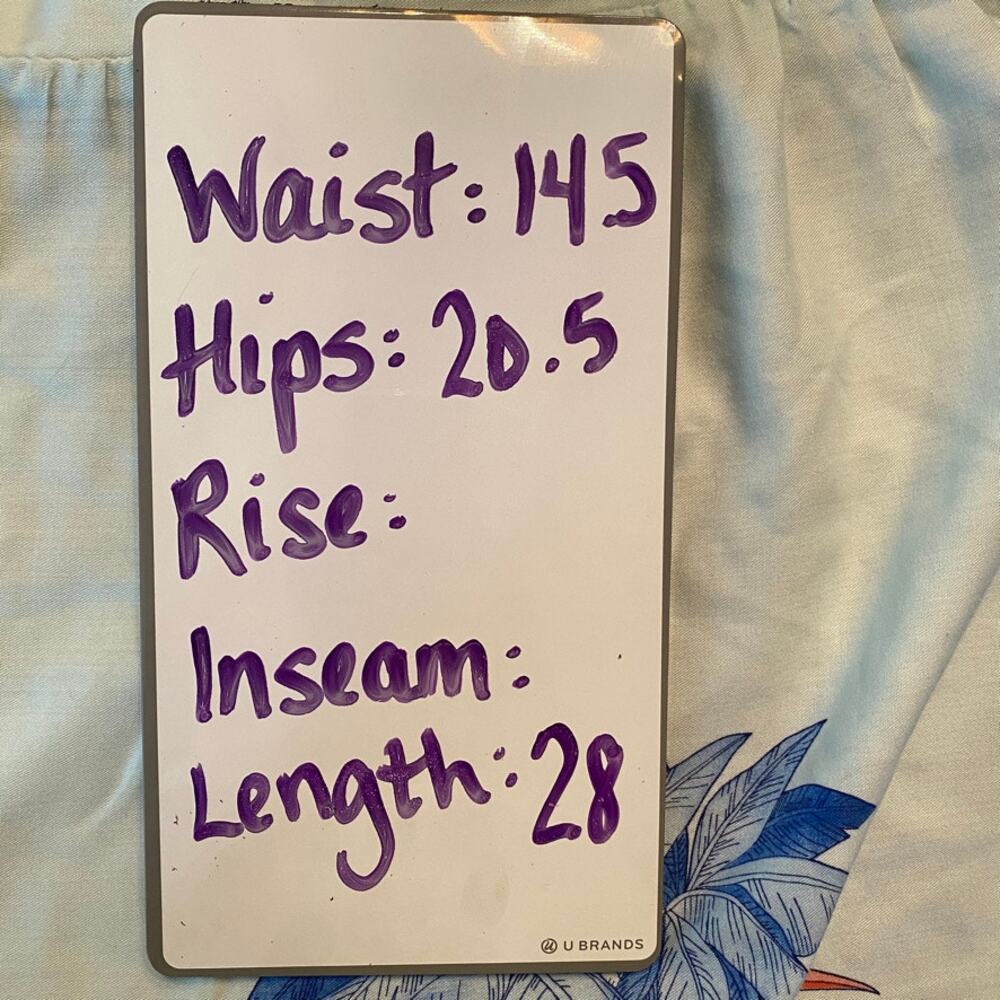 Waist: 145
Hips: 20.5
Rise:
Inseam:
Length: 28
U BRANDS